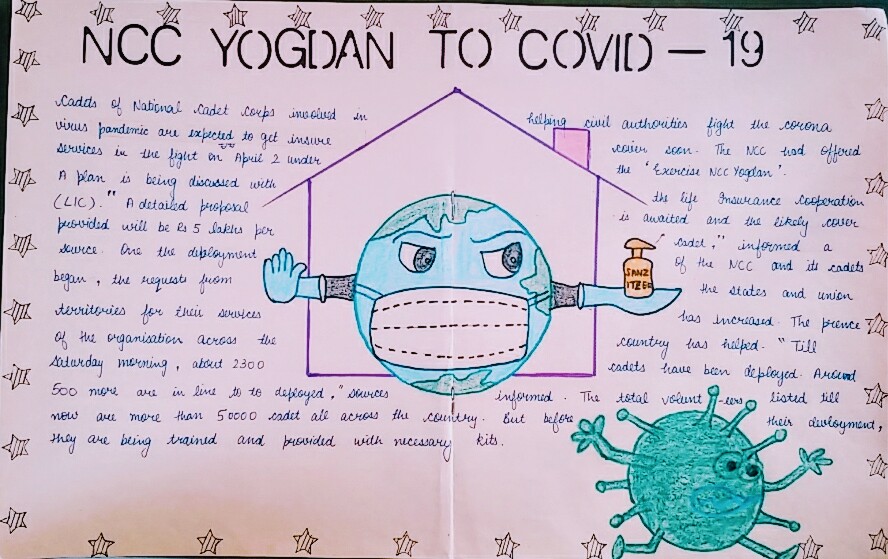 NCC YOGDAN TO COVID - 19
Cadds of National Cadet Corps involved in helping civil authorities fight the corona
virus pandemic are expected to get insure cover soon. The NCC had offered
services in the fight on April 2 under the 'Exercise NCC Yogdan'.
A plan is being discussed with the life Insurance Cooperation
(LIC)." A detailed proposal is awaited and the likely cover
provided will be Rs 5 lakhs per cadet," informed a
source. One the deployment of the NCC and its cadets
began, the requests from the states and union
territories for their services has increased. The prence
of the organisation across the country has helped. "Till
Saturday morning, about 2300 cadets have been deployed. Around
500 more are in line to to deployed," sources informed. The total volunt-eers listed till
now are more than 50000 cadet all across the country. But before their devloyment,
they are being trained and provided with necessary kits.
SANZ
ITZER